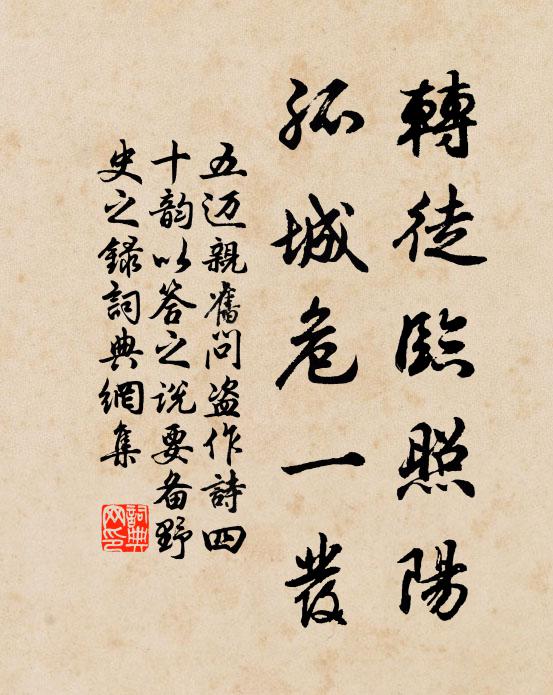 轉徒臨照陽
孤城危一發
五迈親舊問盗作詩四
十韵以答之说要备野
史之録詞典網集
詞典
网印